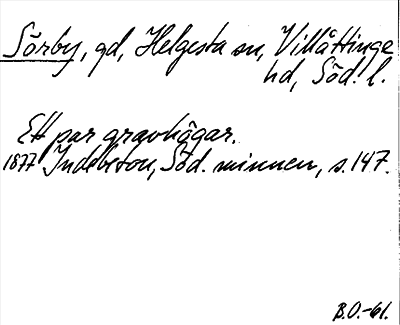 Sörby, gd, Helgesta sn, Villåttinge
hd, Söd. l.
Ett par gravhögar.
1877 Indebetou, Söd. minnen, s. 147.
B.O.-61.